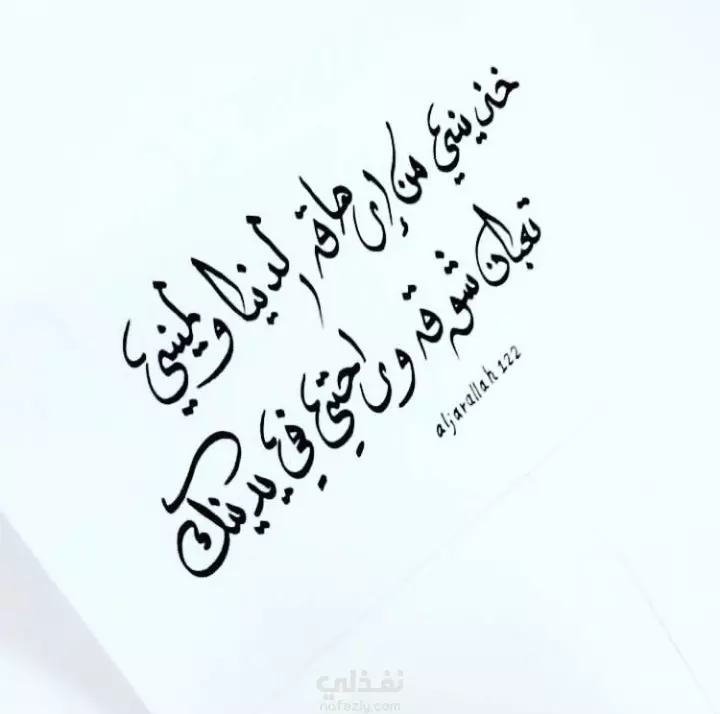 خذيني من إرهاقة الدنيا ولميني
تعبان شوقه وراحتي في يدينك
aljarallah 122
نفذلي
nafezly.com